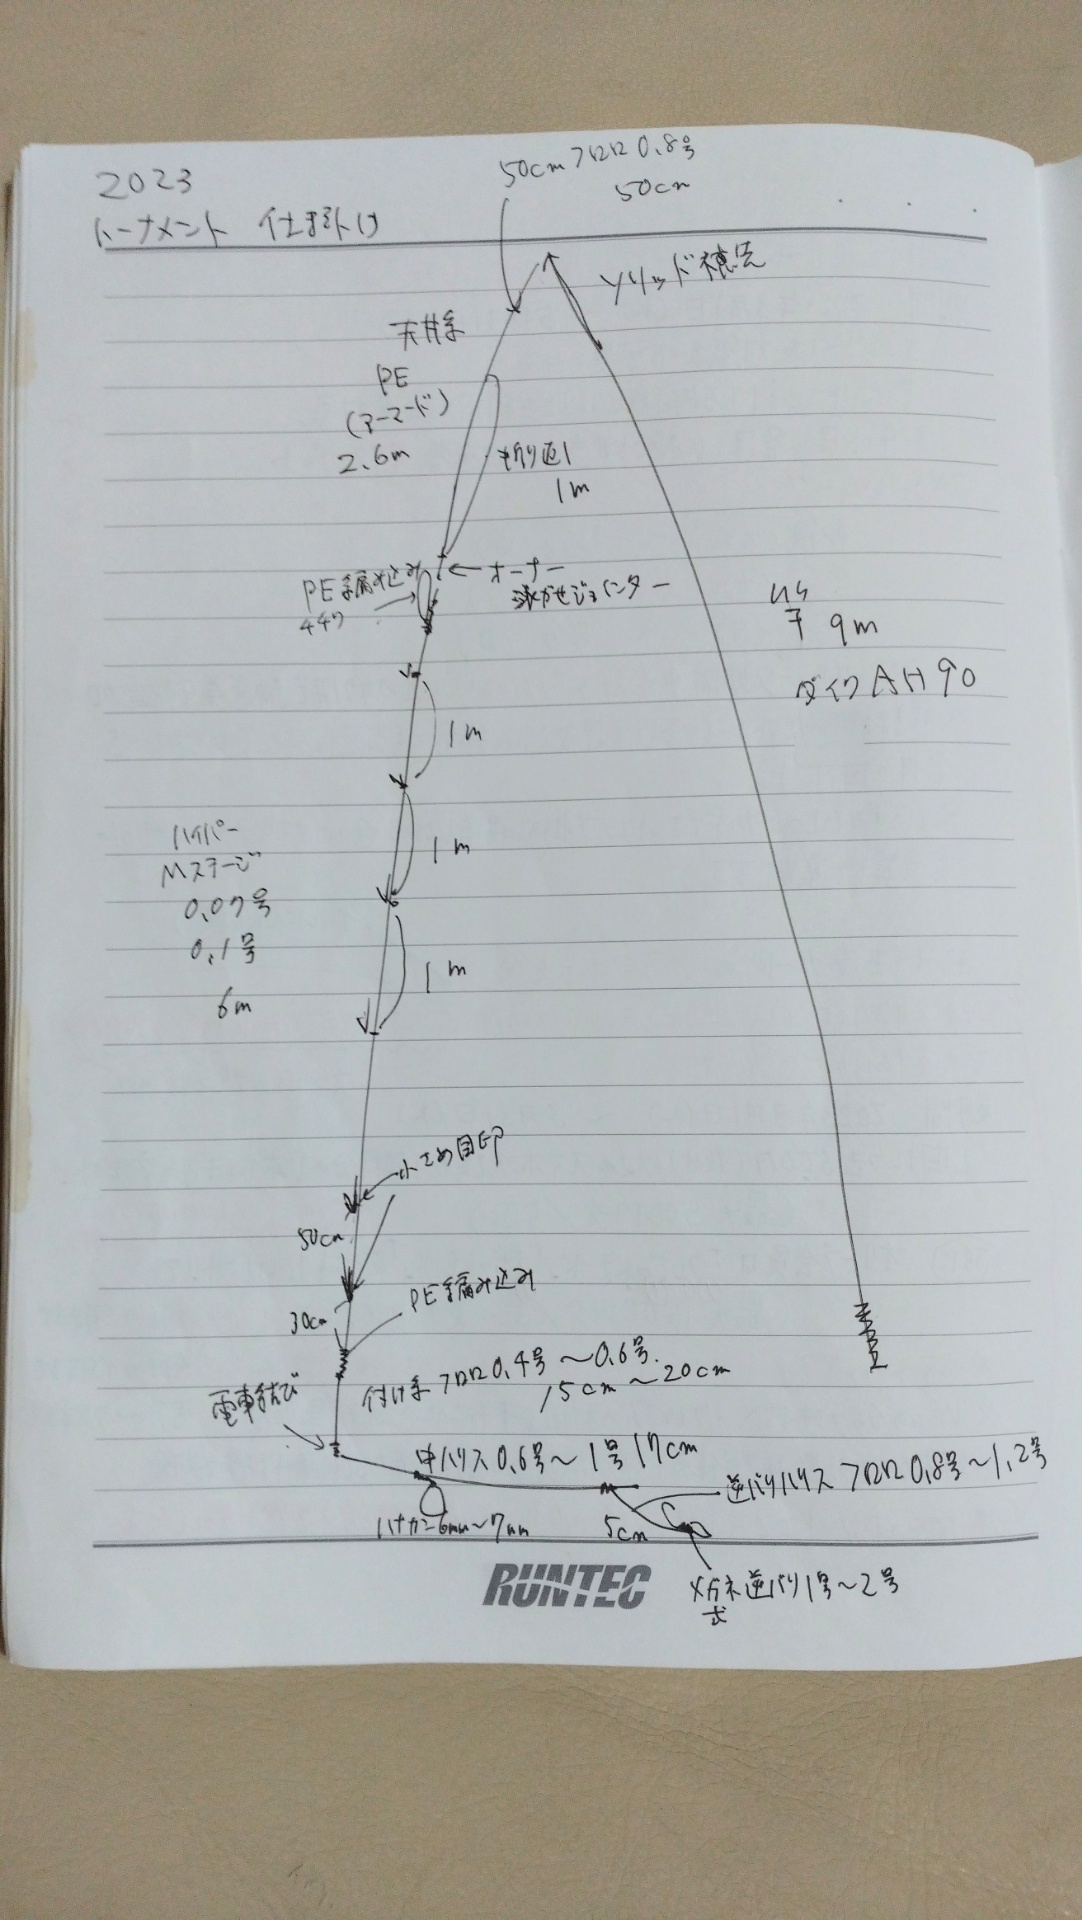 2023
トーナメント 仕掛け
50cm フロロ 0.8号
50cm
ソリッド穂先
天井糸
PE
(アーマード)
2.6m
折り返し
1m
PE編み込み
オーナー
泳がせジョインター
竿 9m
ダイワ AH90
1m
1m
1m
ハイパー
Mステージ
0.07号
0.1号
6m
小さめ目印
50cm
30cm
PE編み込み
電車結び
付け糸 フロロ 0.4号〜0.6号
15cm〜20cm
中ハリス 0.6号〜1号 17cm
逆バリハリス フロロ 0.8号〜1.2号
ハナカン 6mm〜7mm
5cm
メガネ式 逆バリ 1号〜2号
RUNTEC